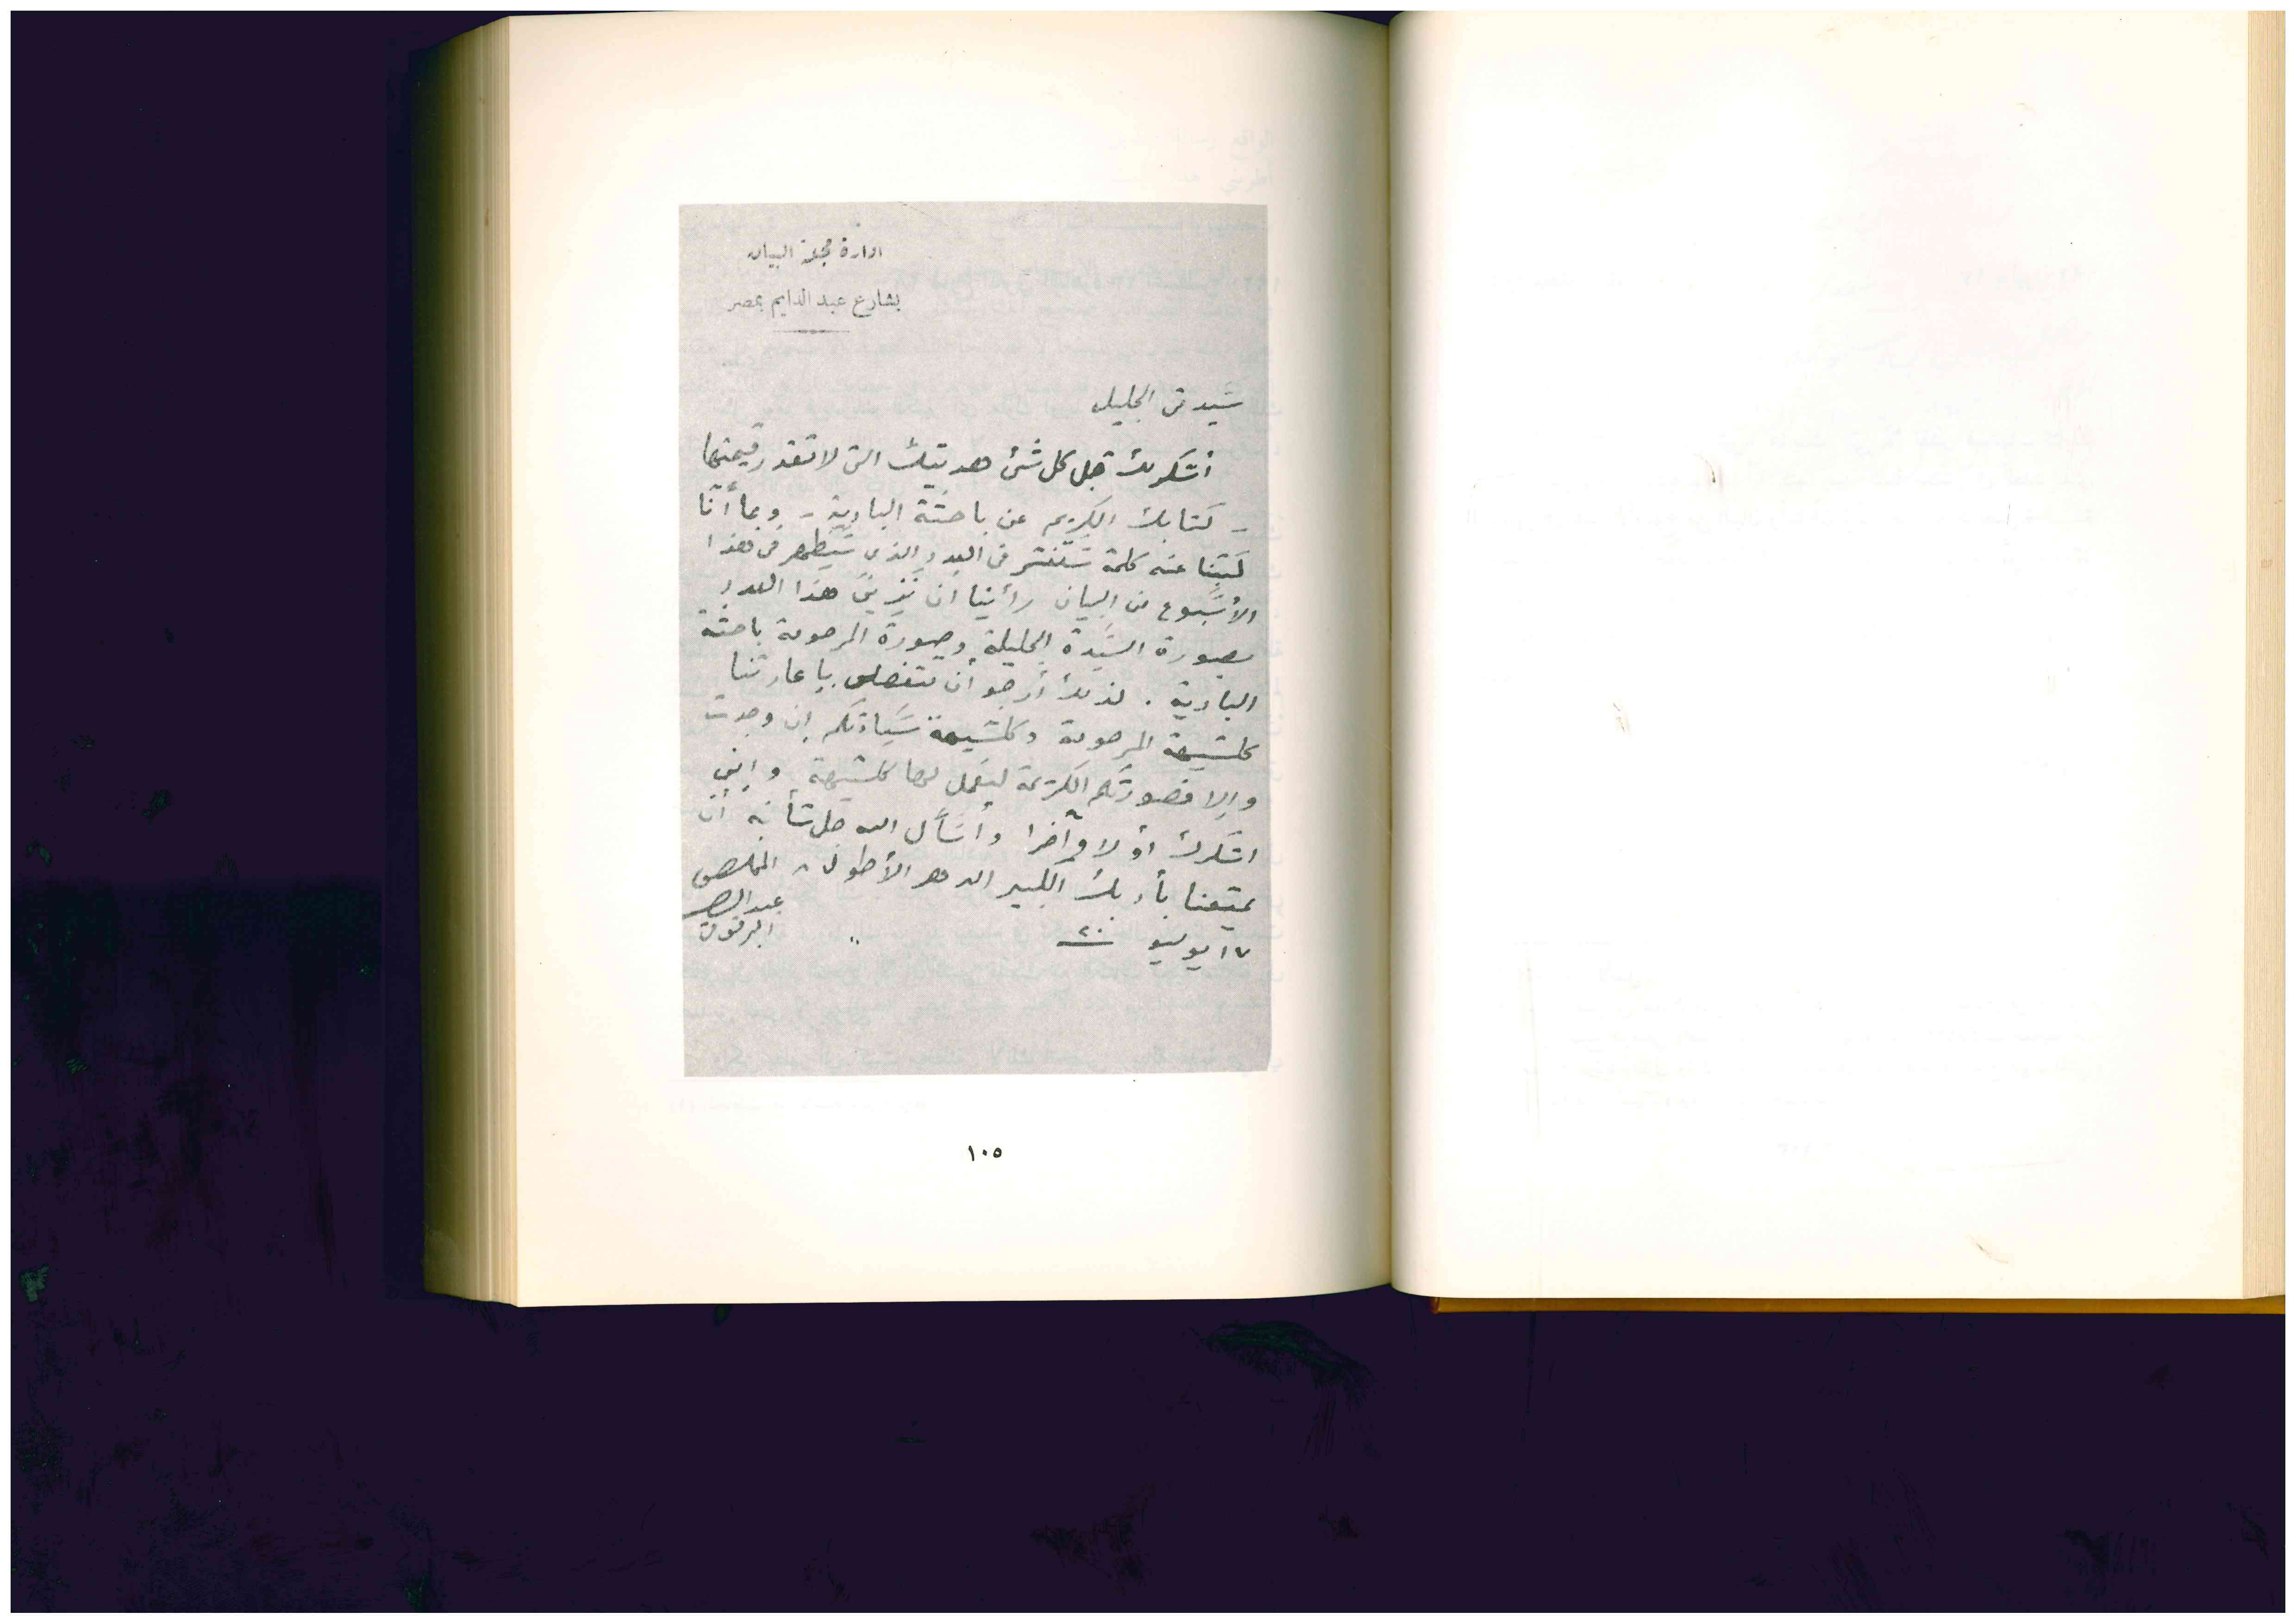 ادارة مجلة البيان
بشارع عبد الدايم بمصر
سيدتى الجليله
أشكر لك قبل كل شئ هديتك التى لا تقدر قيمتها
- كتابك الكريم عن باحثة البادية - وبما أننا
كتبنا عنه كلمة ستنشر فى العدد الذى سيظهر فى هذا
الأسبوع من البيان رأينا أن نزين هذا العدد
بصورة السيدة الجليلة وصورة المرحومة باحثة
البادية . لذلك أرجو أن تتفضلى بإعارتنا
كلشيهة المرحومة وكلشيهة سيادتكم إن وجدت
وإلا فصورتكم الكريمة ليعمل لها كلشيهة وإنى
اشكرك أولا وآخرا وأسأل الله جل شأنه أن
يمتعنا بأدبك الكبير الدهر الأطول المخلص
عبد الرحمن
البرقوقى
١٧ يوليو ٢٠
١٠٥